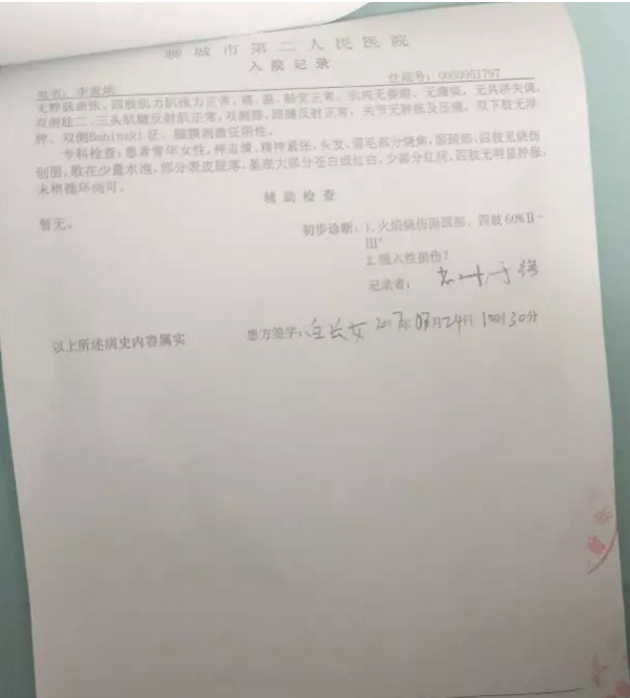 聊城市第二人民医院
入院记录
姓名： 住院号：0000951797
四肢肌力肌张力正常，痛、温、触觉正常，肌肉无萎缩，无瘫痪，无共济失调，
双侧肱二、三头肌腱反射肌正常，双侧膝、跟腱反射正常，关节无肿胀及压痛，双下肢无浮
肿，双侧Babinski 征、脑膜刺激征阴性。
专科检查：患者青年女性，神志清，精神紧张，头发、眉毛部分烧焦，面颈部、四肢见烧伤
创面，散在少量水泡，部分表皮脱落，基底大部分苍白或红白，少部分红润，四肢无明显肿胀，
末梢循环尚可。
辅助检查
暂无。
初步诊断：1.火焰烧伤面颈部、四肢60%Ⅱ-
Ⅲ°
2.吸入性损伤？
记录者：
以上所述病史内容属实 患方签字： 2017年07月24日 10时30分